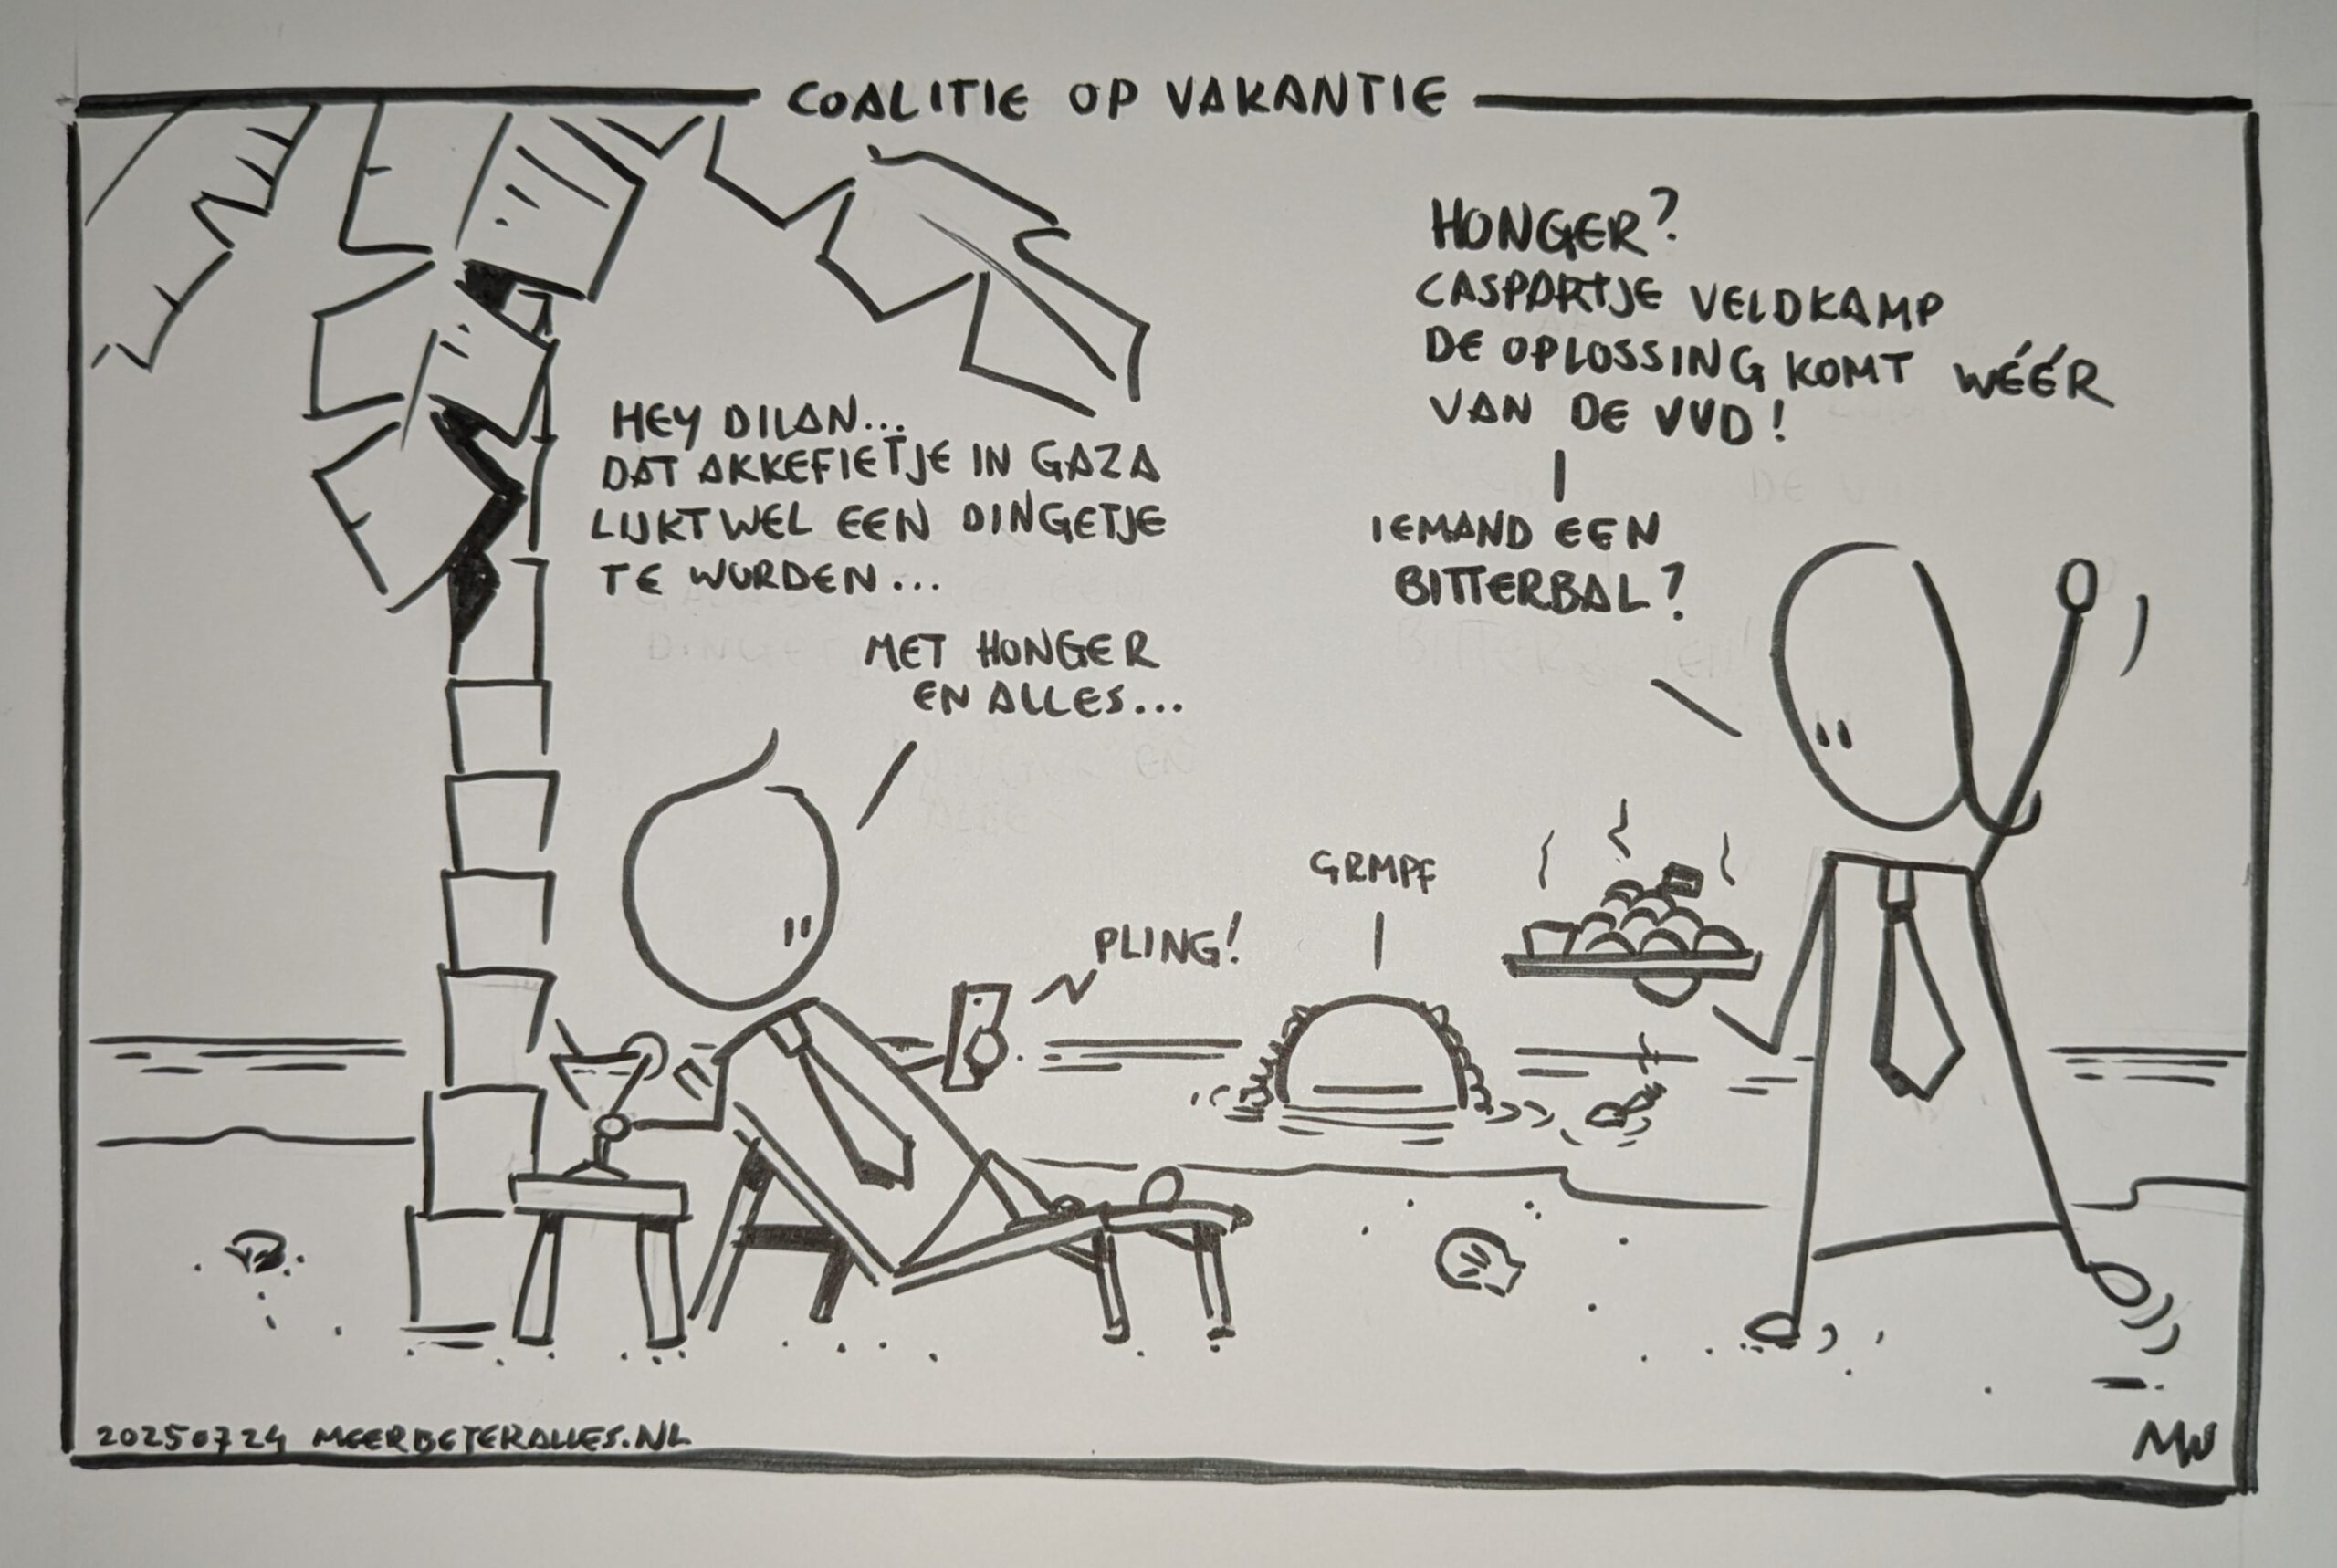 COALITIE OP VAKANTIE
HEY DILAN...
DAT AKKEFIETJE IN GAZA
LIJKT WEL EEN DINGETJE
TE WORDEN...
MET HONGER
EN ALLES...
HONGER?
CASPARTJE VELDKAMP
DE OPLOSSING KOMT WÉÉR
VAN DE VVD!
IEMAND EEN
BITTERBAL?
GRMPF
PLING!
20250724 MEERBETERALLES.NL
MW